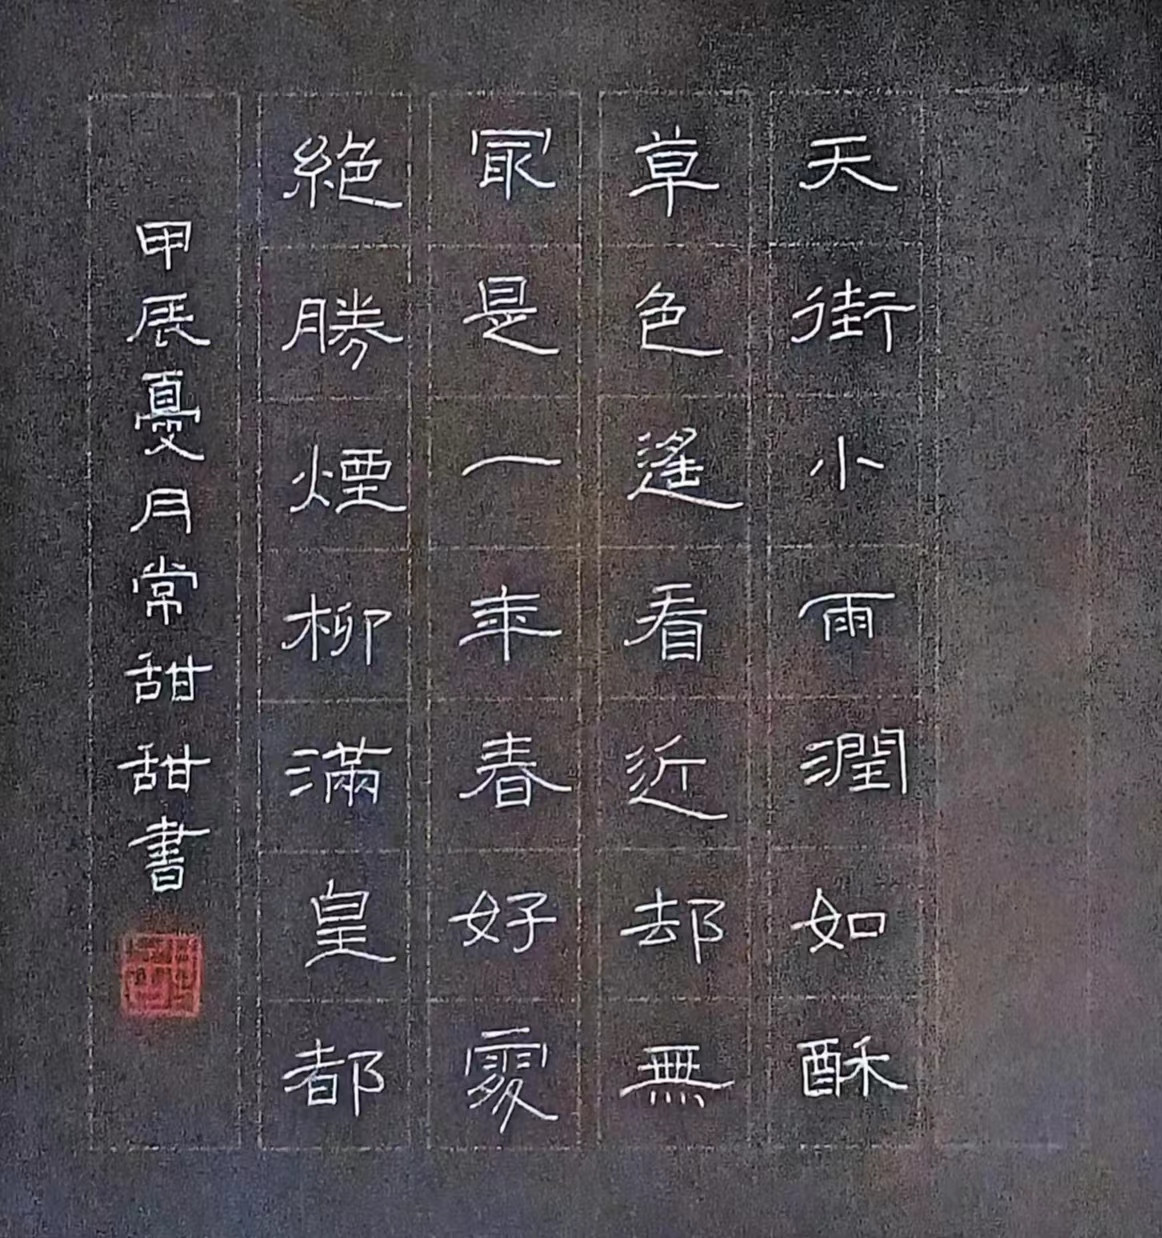 天街小雨潤如酥
草色遙看近却無
冣是一年春好處
絕勝煙柳滿皇都
甲辰夏月常甜甜書